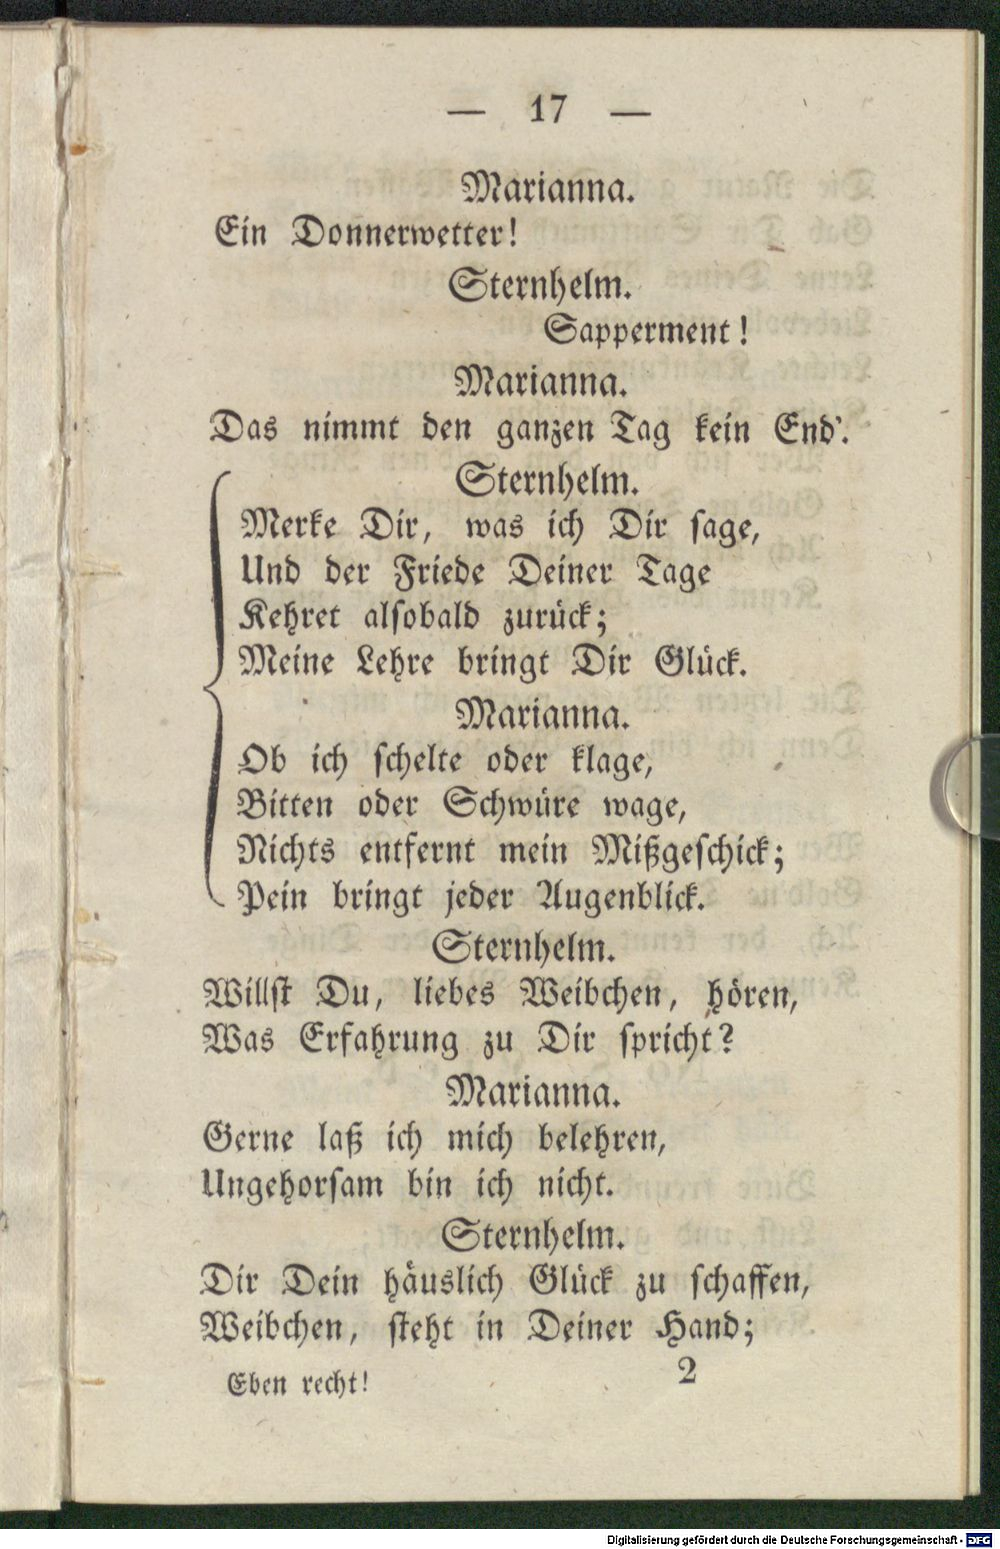 — 17 —
Marianna.
Ein Donnerwetter!
Sternhelm.
Sapperment!
Marianna.
Das nimmt den ganzen Tag kein End'.
Sternhelm.
Merke Dir, was ich Dir sage,
Und der Friede Deiner Tage
Kehret alsobald zurück;
Meine Lehre bringt Dir Glück.
Marianna.
Ob ich schelte oder klage,
Bitten oder Schwüre wage,
Nichts entfernt mein Mißgeschick;
Pein bringt jeder Augenblick.
Sternhelm.
Willst Du, liebes Weibchen, hören,
Was Erfahrung zu Dir spricht?
Marianna.
Gerne laß ich mich belehren,
Ungehorsam bin ich nicht.
Sternhelm.
Dir Dein häuslich Glück zu schaffen,
Weibchen, steht in Deiner Hand;
Eben recht! 2
Digitalisierung gefördert durch die Deutsche Forschungsgemeinschaft - DFG